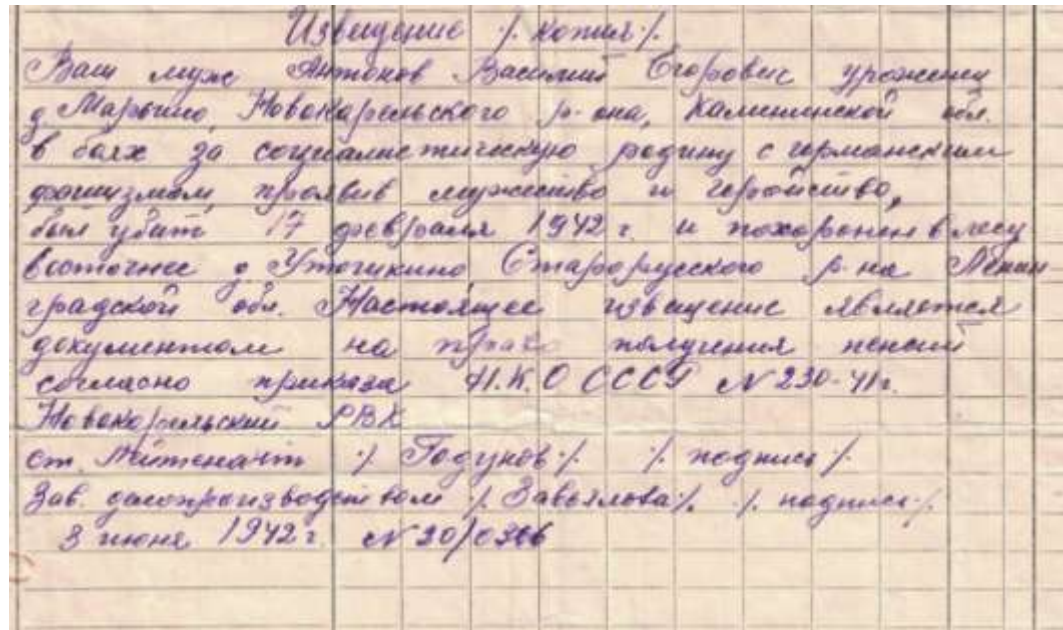 Извещение ·/. Копия ·/.
Ваш муж Антонов Василий Егорович уроженец
д Марьино, Новокарельского р-она, Калининской обл.
в боях за социалистическую родину с германским
фашизмом, проявив мужество и геройство,
был убит 17 февраля 1942 г. и похоронен в лесу
восточнее д Утошкино Старорусского р-на Ленин
градской обл. Настоящее извещение является
документом на право получения пенсии
согласно приказа Н.К.О СССР N 230-41г.
Новокарельский РВК
ст. Лейтенант ·/. Годунов ·/. ·/. подпись ·/.
Зав. делопроизводством ·/. Завьялова ·/. ·/. подпись ·/.
3 июня 1942 г. N 20/0366